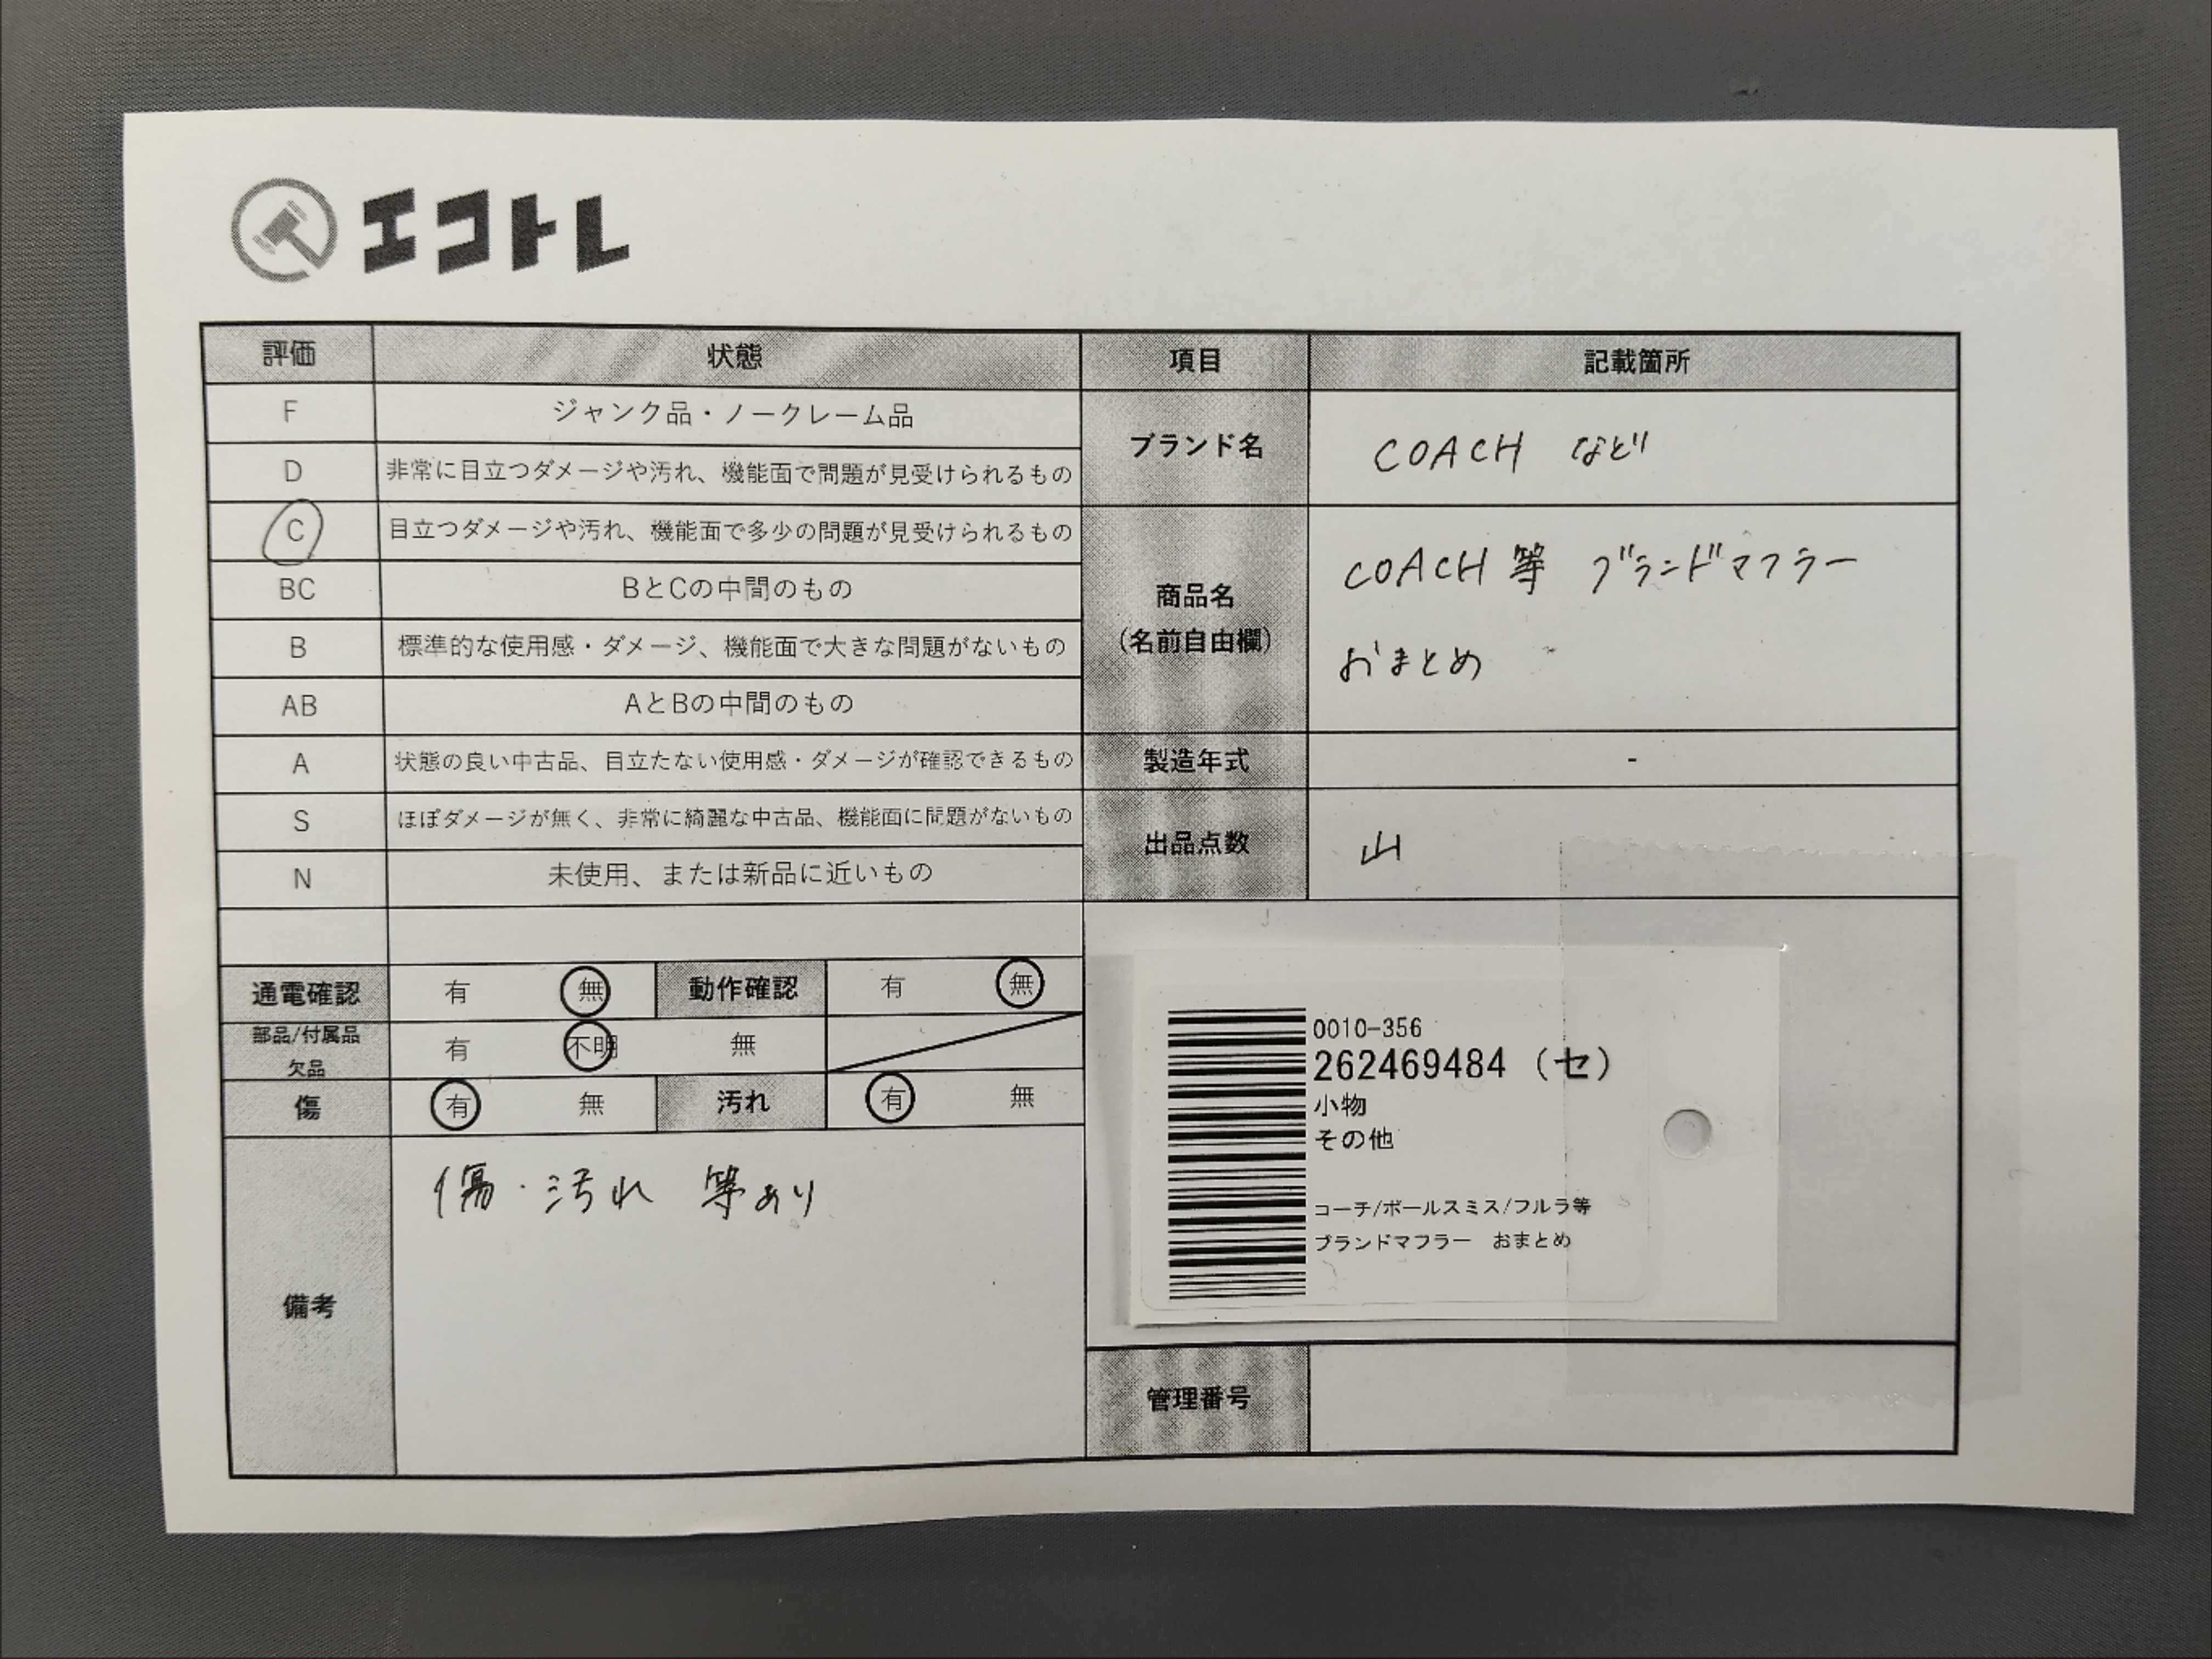 エコトレ
評価 状態 項目 記載箇所
F ジャンク品・ノークレーム品
D 非常に目立つダメージや汚れ、機能面で問題が見受けられるもの
C 目立つダメージや汚れ、機能面で多少の問題が見受けられるもの
BC BとCの中間のもの
B 標準的な使用感・ダメージ、機能面で大きな問題がないもの
AB AとBの中間のもの
A 状態の良い中古品、目立たない使用感・ダメージが確認できるもの
S ほぼダメージが無く、非常に綺麗な中古品、機能面に問題がないもの
N 未使用、または新品に近いもの
ブランド名 COACH など
商品名
(名前自由欄)
COACH等 ブランドマフラー
おまとめ
製造年式 -
出品点数 山
通電確認 有 無 動作確認 有 無
部品/付属品
欠品
有 不明 無
傷 有 無 汚れ 有 無
備考
傷・汚れ 等あり
0010-356
262469484 (セ)
小物
その他
コーチ/ポールスミス/フルラ等
ブランドマフラー おまとめ
管理番号